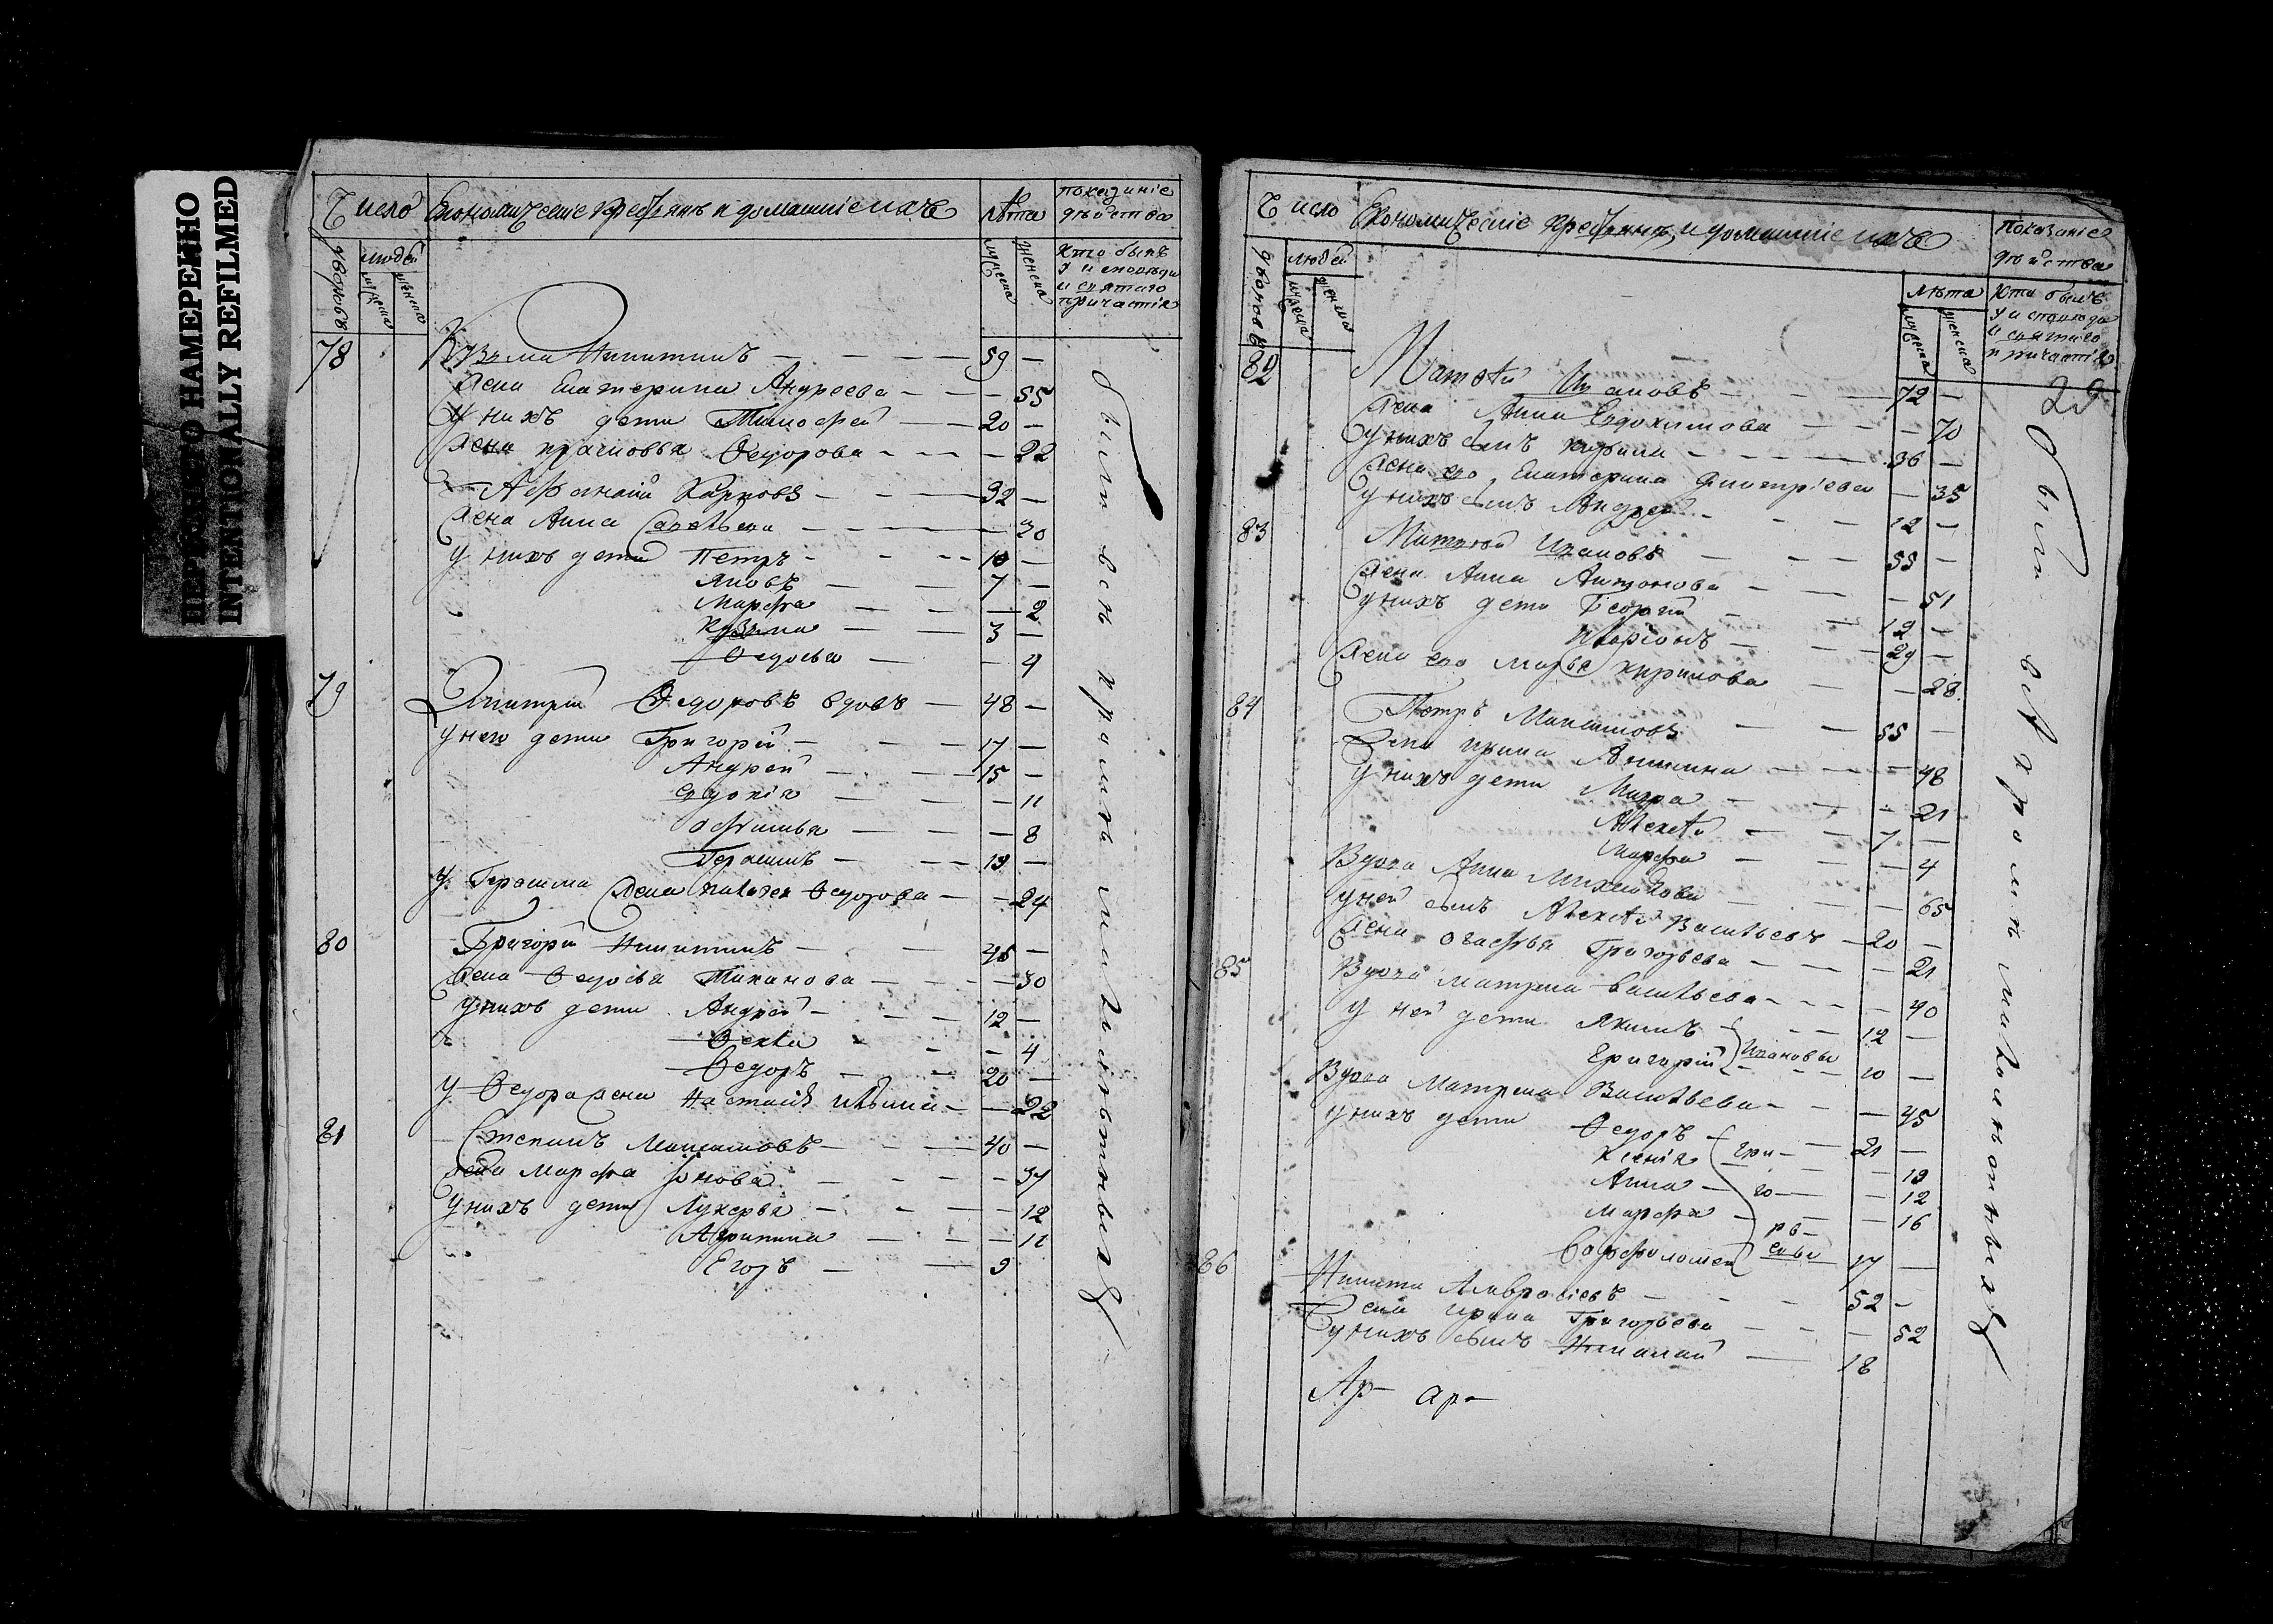 НЕРЕДКО НАМЕРЕННО
INTENTIONALLY REFILMED
Число Економическіе крестьянъ и домашніе ихъ Лѣта показаніе
дѣйства
дворовъ людей мужеска женска мужеска женска
Кто былъ
у исповѣди
и святаго
причастія
78 Кузьма Никитинъ 59
Жена Екатерина Андреева 55
У нихъ дети Тимофей 20
Жена прасковья Ѳедорова 22
Афанасій Карповъ 32
Жена Анна Савельева 30
у нихъ дети Петръ 10
Яковъ 7
Марфа 2
Кузьма 3
Ѳедосья 4
79 Дмитрій Ѳедоровъ вдовъ 48
у него дети Григорій 17
Андрей 15
Евдокія 11
Офимья 8
Герасимъ 19
У Герасима Жена Наталья Ѳедорова 24
80 Григорій Никитинъ 45
Жена Ѳедосья Тихонова 30
у нихъ дети Андрей 12
Ѳекла 4
Ѳедоръ 20
У Ѳедора жена Настасья Ильина 22
81 Степанъ Максимовъ 40
жена Марфа Іонова 37
у нихъ дети Лукерья 12
Агрипина 11
Егоръ 9
были все кроме малолѣтныхъ
Число Економическіе крестьянъ и домашніе ихъ Показаніе
дѣйства
дворовъ людей мужеска женска Лѣта мужеска женска
Кто былъ
у исповѣди
и святаго
причастія
20
82 Матвѣй Ивановъ 72
Жена Анна Евдокимова 70
у нихъ сынъ Кирила 36
Жена его Екатерина Дмитріева 35
у нихъ сынъ Андрей 12
83 Матвей Ивановъ 55
Жена Анна Антонова 51
у нихъ дети Георгій 12
Иларіонъ 29
Жена его Марья Кирилова 28
84 Петръ Максимовъ 55
Жена Ирина Аникина 48
У нихъ дети Мавра 21
Алексѣй 7
Марфа 4
Вдова Анна Михайлова 65
у ней сынъ Алексѣй Васильевъ 20
Жена Огафья Григорьева 21
85 Вдова Матрена Васильева 40
У ней дети Якимъ 12
Григорій Ивановы 10
Вдова Матрена Васильева 45
у нихъ дети Ѳедоръ Гри 21
Ксенія 19
Анна го 12
Марфа рь 16
Варфоломей евы 17
86 Никита Амвросіевъ 52
Жена Ирина Григорьева 52
у нихъ сынъ Николай 18
Ар ар
были всѣ кроме малолѣтныхъ